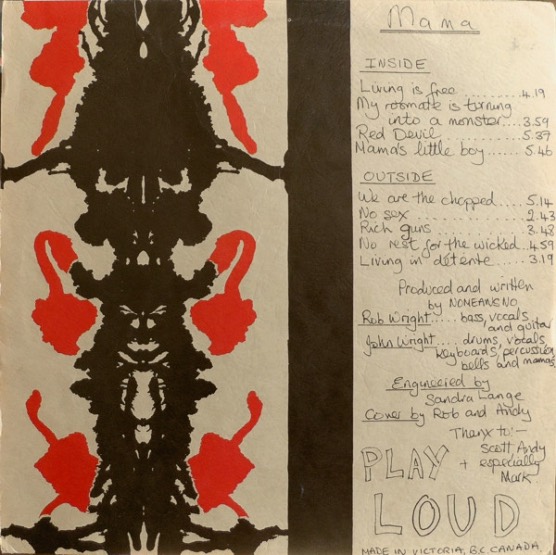 Mama
INSIDE
Living is free ......... 4.19
My roomate is turning
into a monster.... 3.59
Red Devil ......... 5.37
Mama's little boy ..... 5.46
OUTSIDE
We are the chopped.... 5.14
No sex ............ 2.43
Rich guns ......... 3.48
No rest for the wicked. 4.59
Living in détente .... 3.19
Produced and written
by NOMEANSNO
Rob Wright..... bass, vocals,
and guitar
John Wright.... drums, vocals,
keyboards, percussion
bells and mamas
Engineered by
Sandra Lange
Cover by Rob and Andy
Thanx to:-
Scott, Andy
+ especially
Mark
PLAY
LOUD
MADE IN VICTORIA, B.C. CANADA